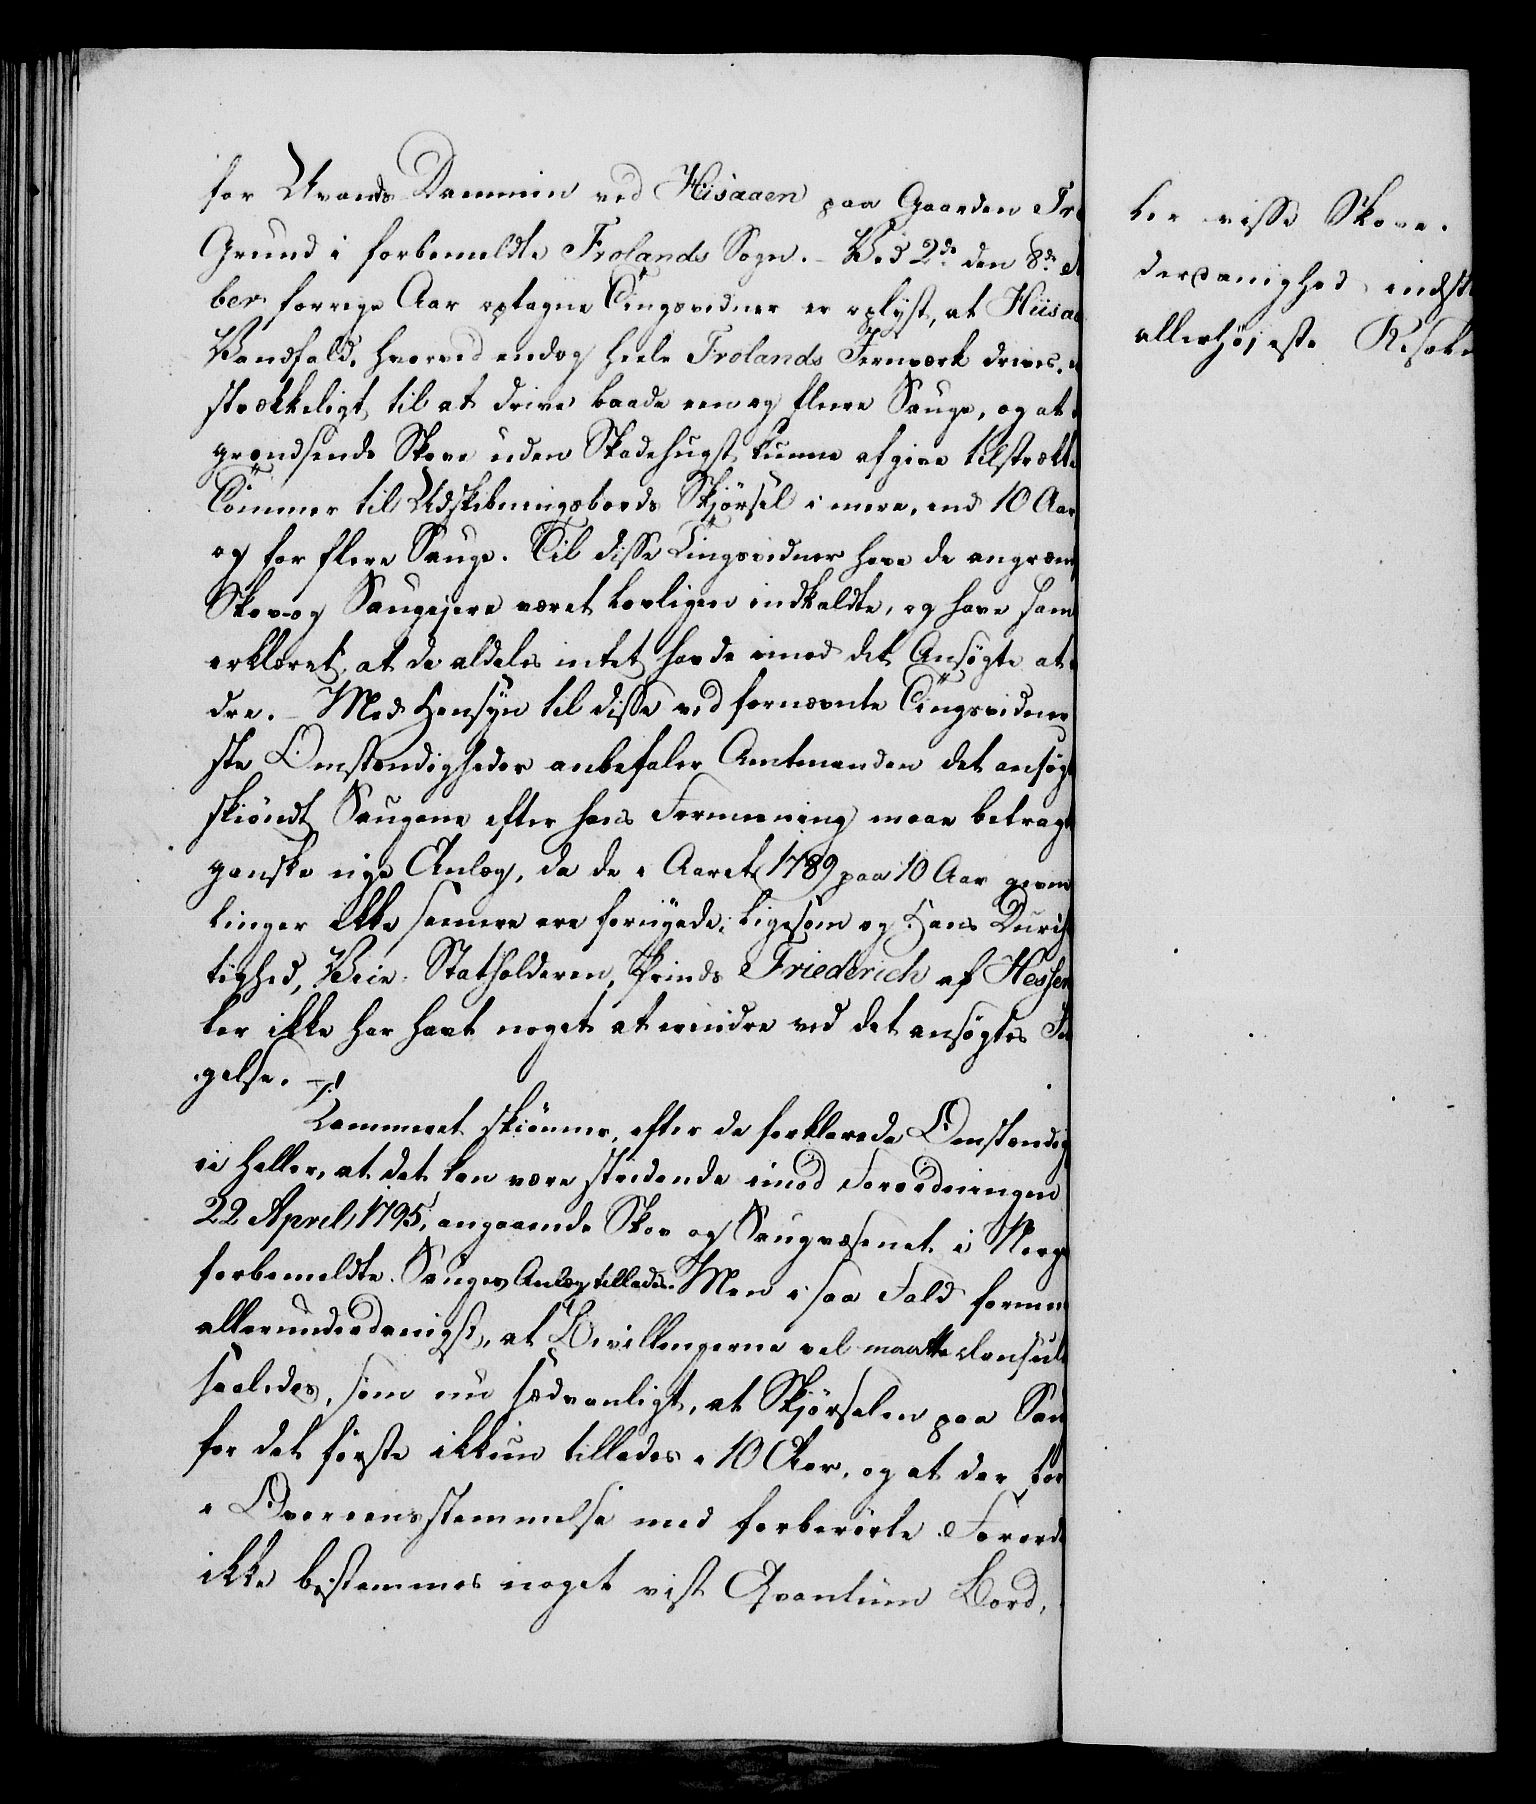 for Uvands Dammen ved Hisaaen paa Gaarden Fro
Grund i forbemeldte Frolands Sogn. – Ved 2de den 8de
ber forrige Aar optagne Tingsvidner er oplyst, at Hiisaa
Vandfald, hvorved endog heele Frolands Jernværk drives, e
strækkeligt til at drive baade een og flere Sauge, og at
grændsende Skove uden Skadehugst kunne afgive tilstrække
Tømmer til Udskibningsbords Skjørsel i mere, end 10 Aar
og for flere Sauge. Til disse Tingsvidner have de angræn
Skov og Saugejere været lovligen indkaldte, og have sam
erklæret, at de aldeles intet havde imod det Ansøgte at
dre. – Med Hensyn til disse ved fornævnte Tingsvidner
ste Omstændigheder anbefaler Amtmanden det ansøg
skiøndt Saugene efter hans Formening maae betragt
ganske nye Anlæg, da de i Aaret 1789 paa 10 Aar givne
linger ikke senere ere fornyede; ligesom og Hans Durch
tighed, Vice Statholderen, Prinds Friederich af Hessen
ler ikke har havt noget at erindre ved det ansøgtes
gelse. –
Kammeret skiønner, efter de forklarede Omstændig
ei heller, at det kan være stridende imod Forordningen
22 April 1795, angaaende Skov og Saugvæsenet i Norge
forbemeldte Sauges Anlæg tillades. Men i saa Fald formen
allerunderdanigst, at Bevillingerne vel maatte clausule
saaledes, som nu sædvanligt, at Skjørselen paa Sau
for det første ikkun tillades i 10 Aar, og at der for
i Overeensstemmelse med forberørte Forord
ikke bestemmes noget vist Qvantum Bord,
ler visse Skove.
derdanighed indst
allerhøjeste Resolu